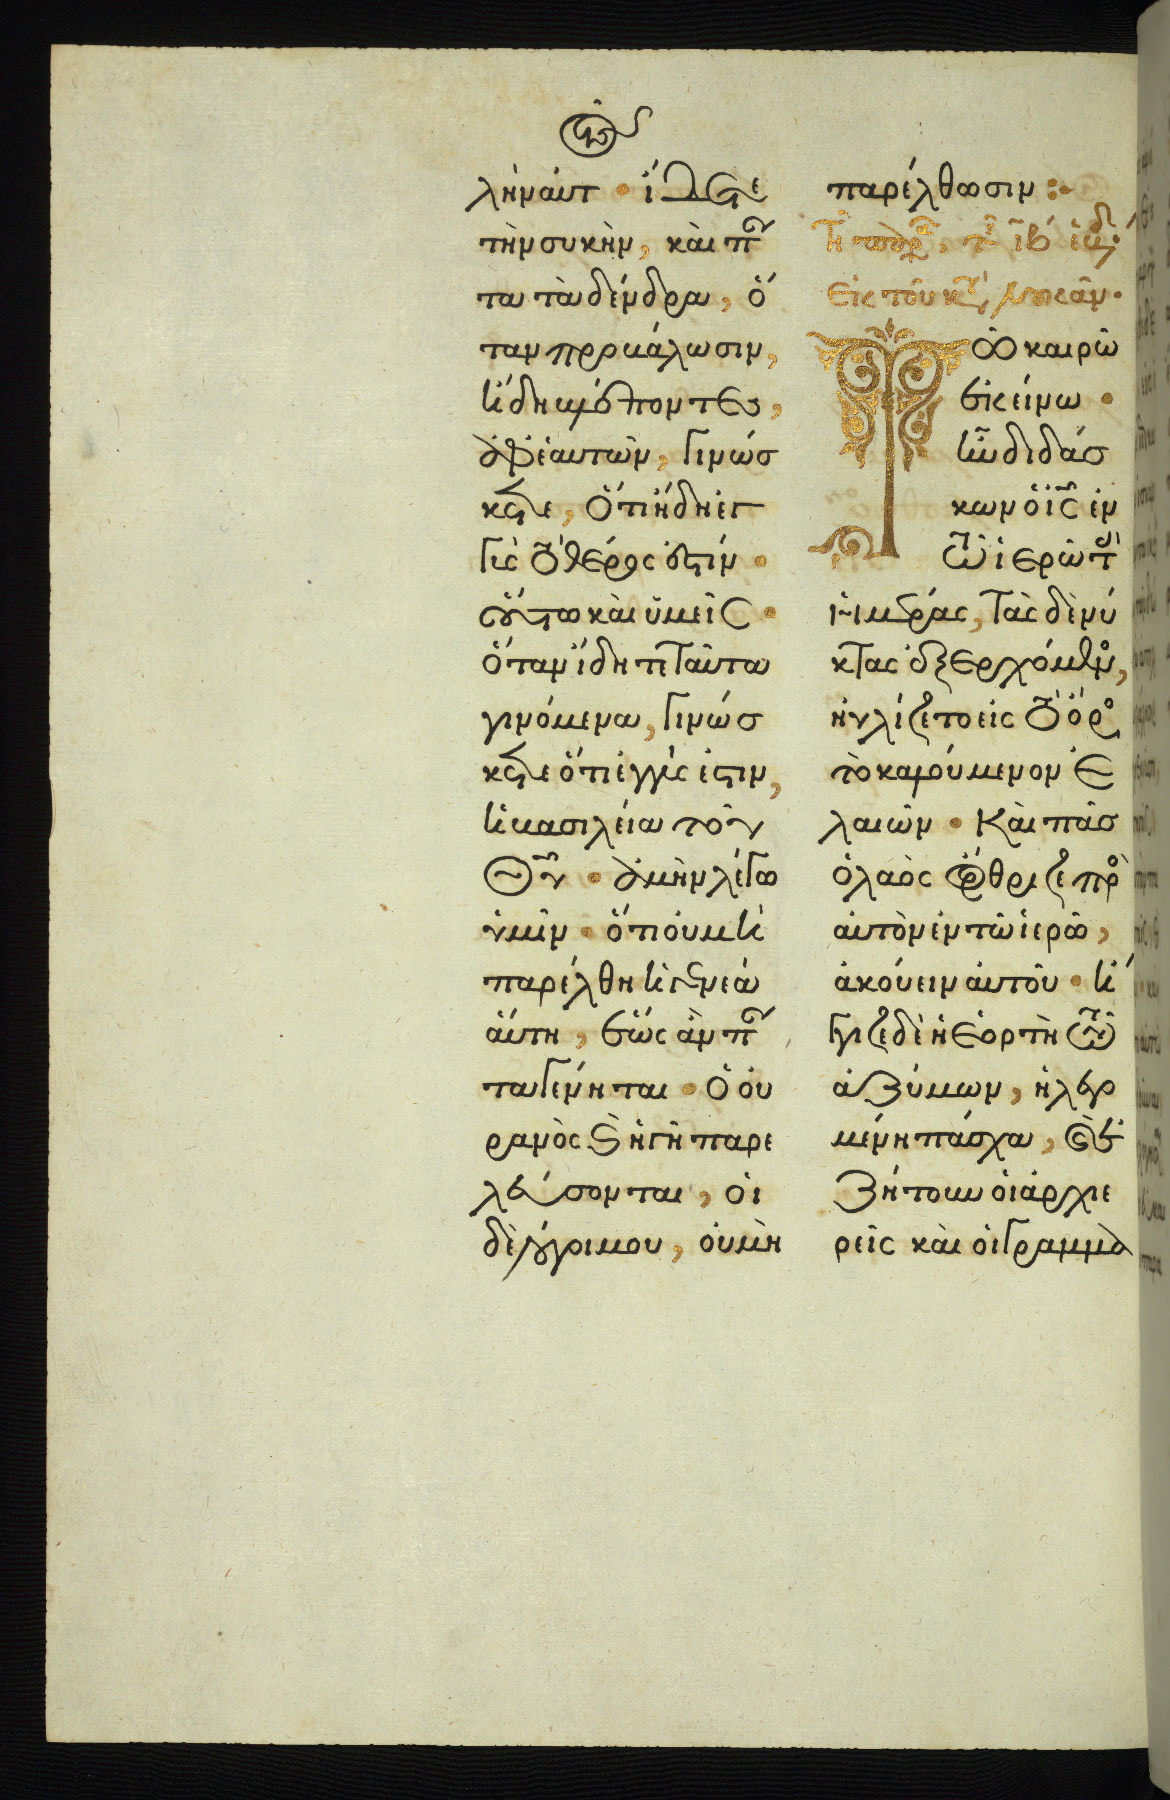 λὴν αὐτ · ἴδετε
τὴν συκὴν, καὶ πάν
τα τὰ δένδρα, ὅ
ταν προβάλωσιν,
ἤδη βλέποντες,
ἀφ' ἑαυτῶν, γινώσ
κετε, ὅτι ἤδη ἐγ
γὺς τὸ θέρος ἐστίν ·
οὕτω καὶ ὑμεῖς ·
ὅταν ἴδητε ταῦτα
γινόμενα, γινώσ
κετε ὅτι ἐγγύς ἐστιν,
ἡ βασιλεία τοῦ
Θῦ · ἀμὴν λέγω
ὑμῖν · ὅτι οὐ μὴ
παρέλθη ἡ γενεὰ
αὕτη, ἕως ἂν πάν
τα γένηται · ὁ οὐ
ρανὸς καὶ ἡ γῆ παρε
λεύσονται, οἱ
δὲ λόγοι μου, οὐ μὴ
παρέλθωσιν :
Τῇ ιβ ἑβδ
Ἐκ τοῦ κατ λουκᾶν ·
Τῶ καιρῶ
ἐκείνω ·
ἦν διδάσ
κων ὁ ἰς ἐν
τῶ ἱερῶ τὰς
ἡμέρας, τὰς δὲ νύ
κτας ἐξερχόμενος,
ηὐλίζετο εἰς τὸ ὄρος
τὸ καλούμενον Ἐ
λαιῶν · Καὶ πᾶσ
ὁ λαὸς ὤρθριζε πρὸς
αὐτὸν ἐν τῶ ἱερῶ,
ἀκούειν αὐτοῦ · ἤ
γγιζε δὲ ἡ ἑορτὴ τῶν
ἀζύμων, ἡ λεγο
μένη πάσχα, καὶ ἐ
ζήτουν οἱ ἀρχιε
ρεῖς καὶ οἱ γραμμα